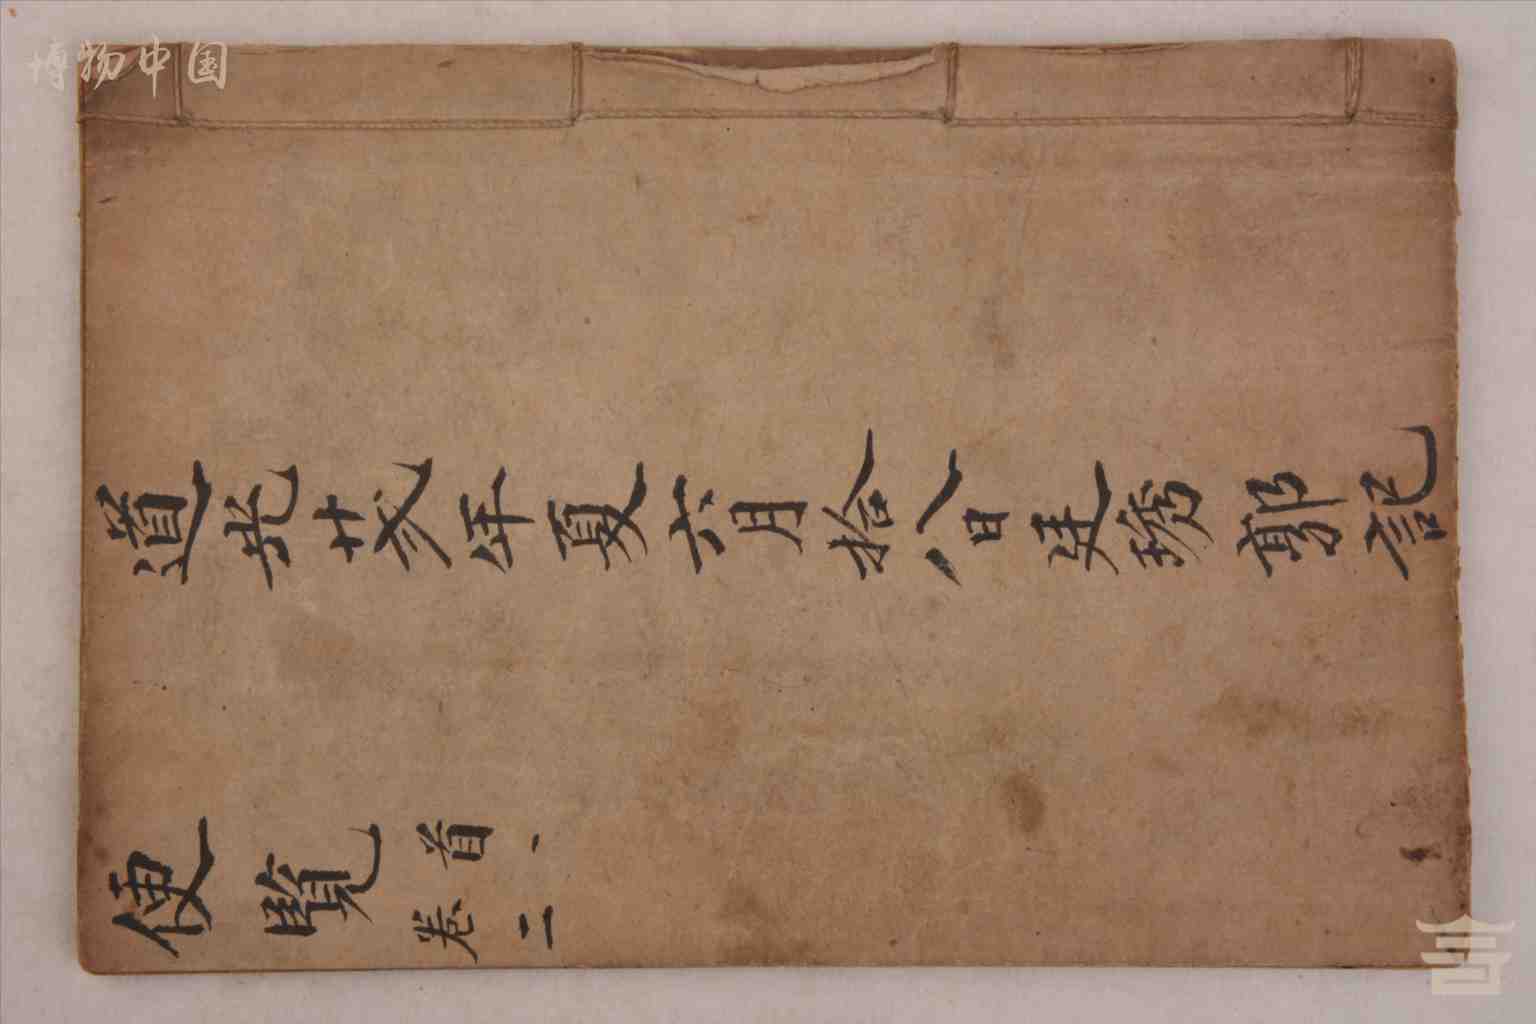 博物中国
道光廿年夏六月拾八日郭記
便覽
首一
卷二